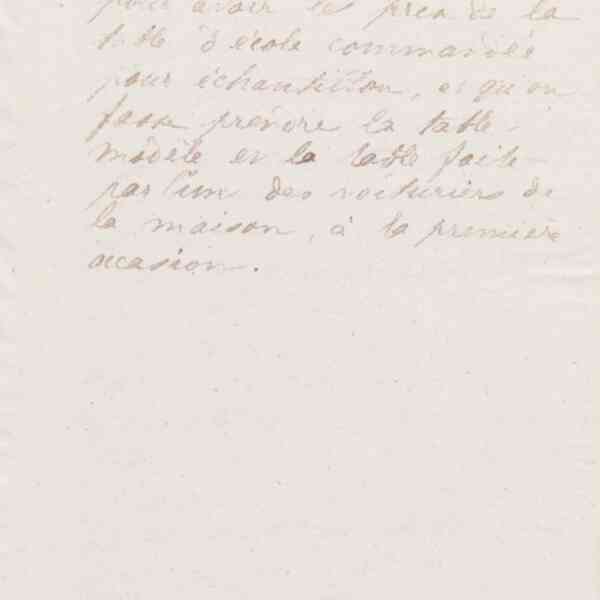 pour avoir le prix de la
table d'école commandée
pour échantillon, et qu'on
fasse prendre la table
modèle et la table faite
par l'un des voituriers de
la maison, à la première
ocasion.